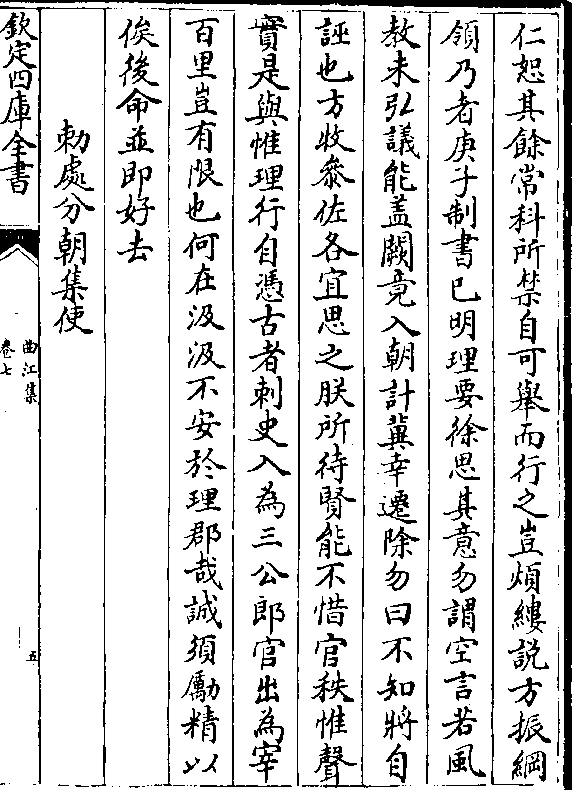 仁恕其餘常科所禁自可舉而行之豈煩縷説方振綱
領乃者庚子制書已明理要徐思其意勿謂空言若風
教未弘議能盖闕竟入朝計冀幸遷除勿曰不知將自
誣也方牧叅佐各宜思之朕所待賢能不惜官秩惟聲
實是與惟理行自憑古者刺史入為三公郎官出為宰
百里豈有限也何在汲汲不安於理郡哉誠須勵精以
俟後命並即好去
勅處分朝集使
欽定四庫全書
曲江集
卷七
五